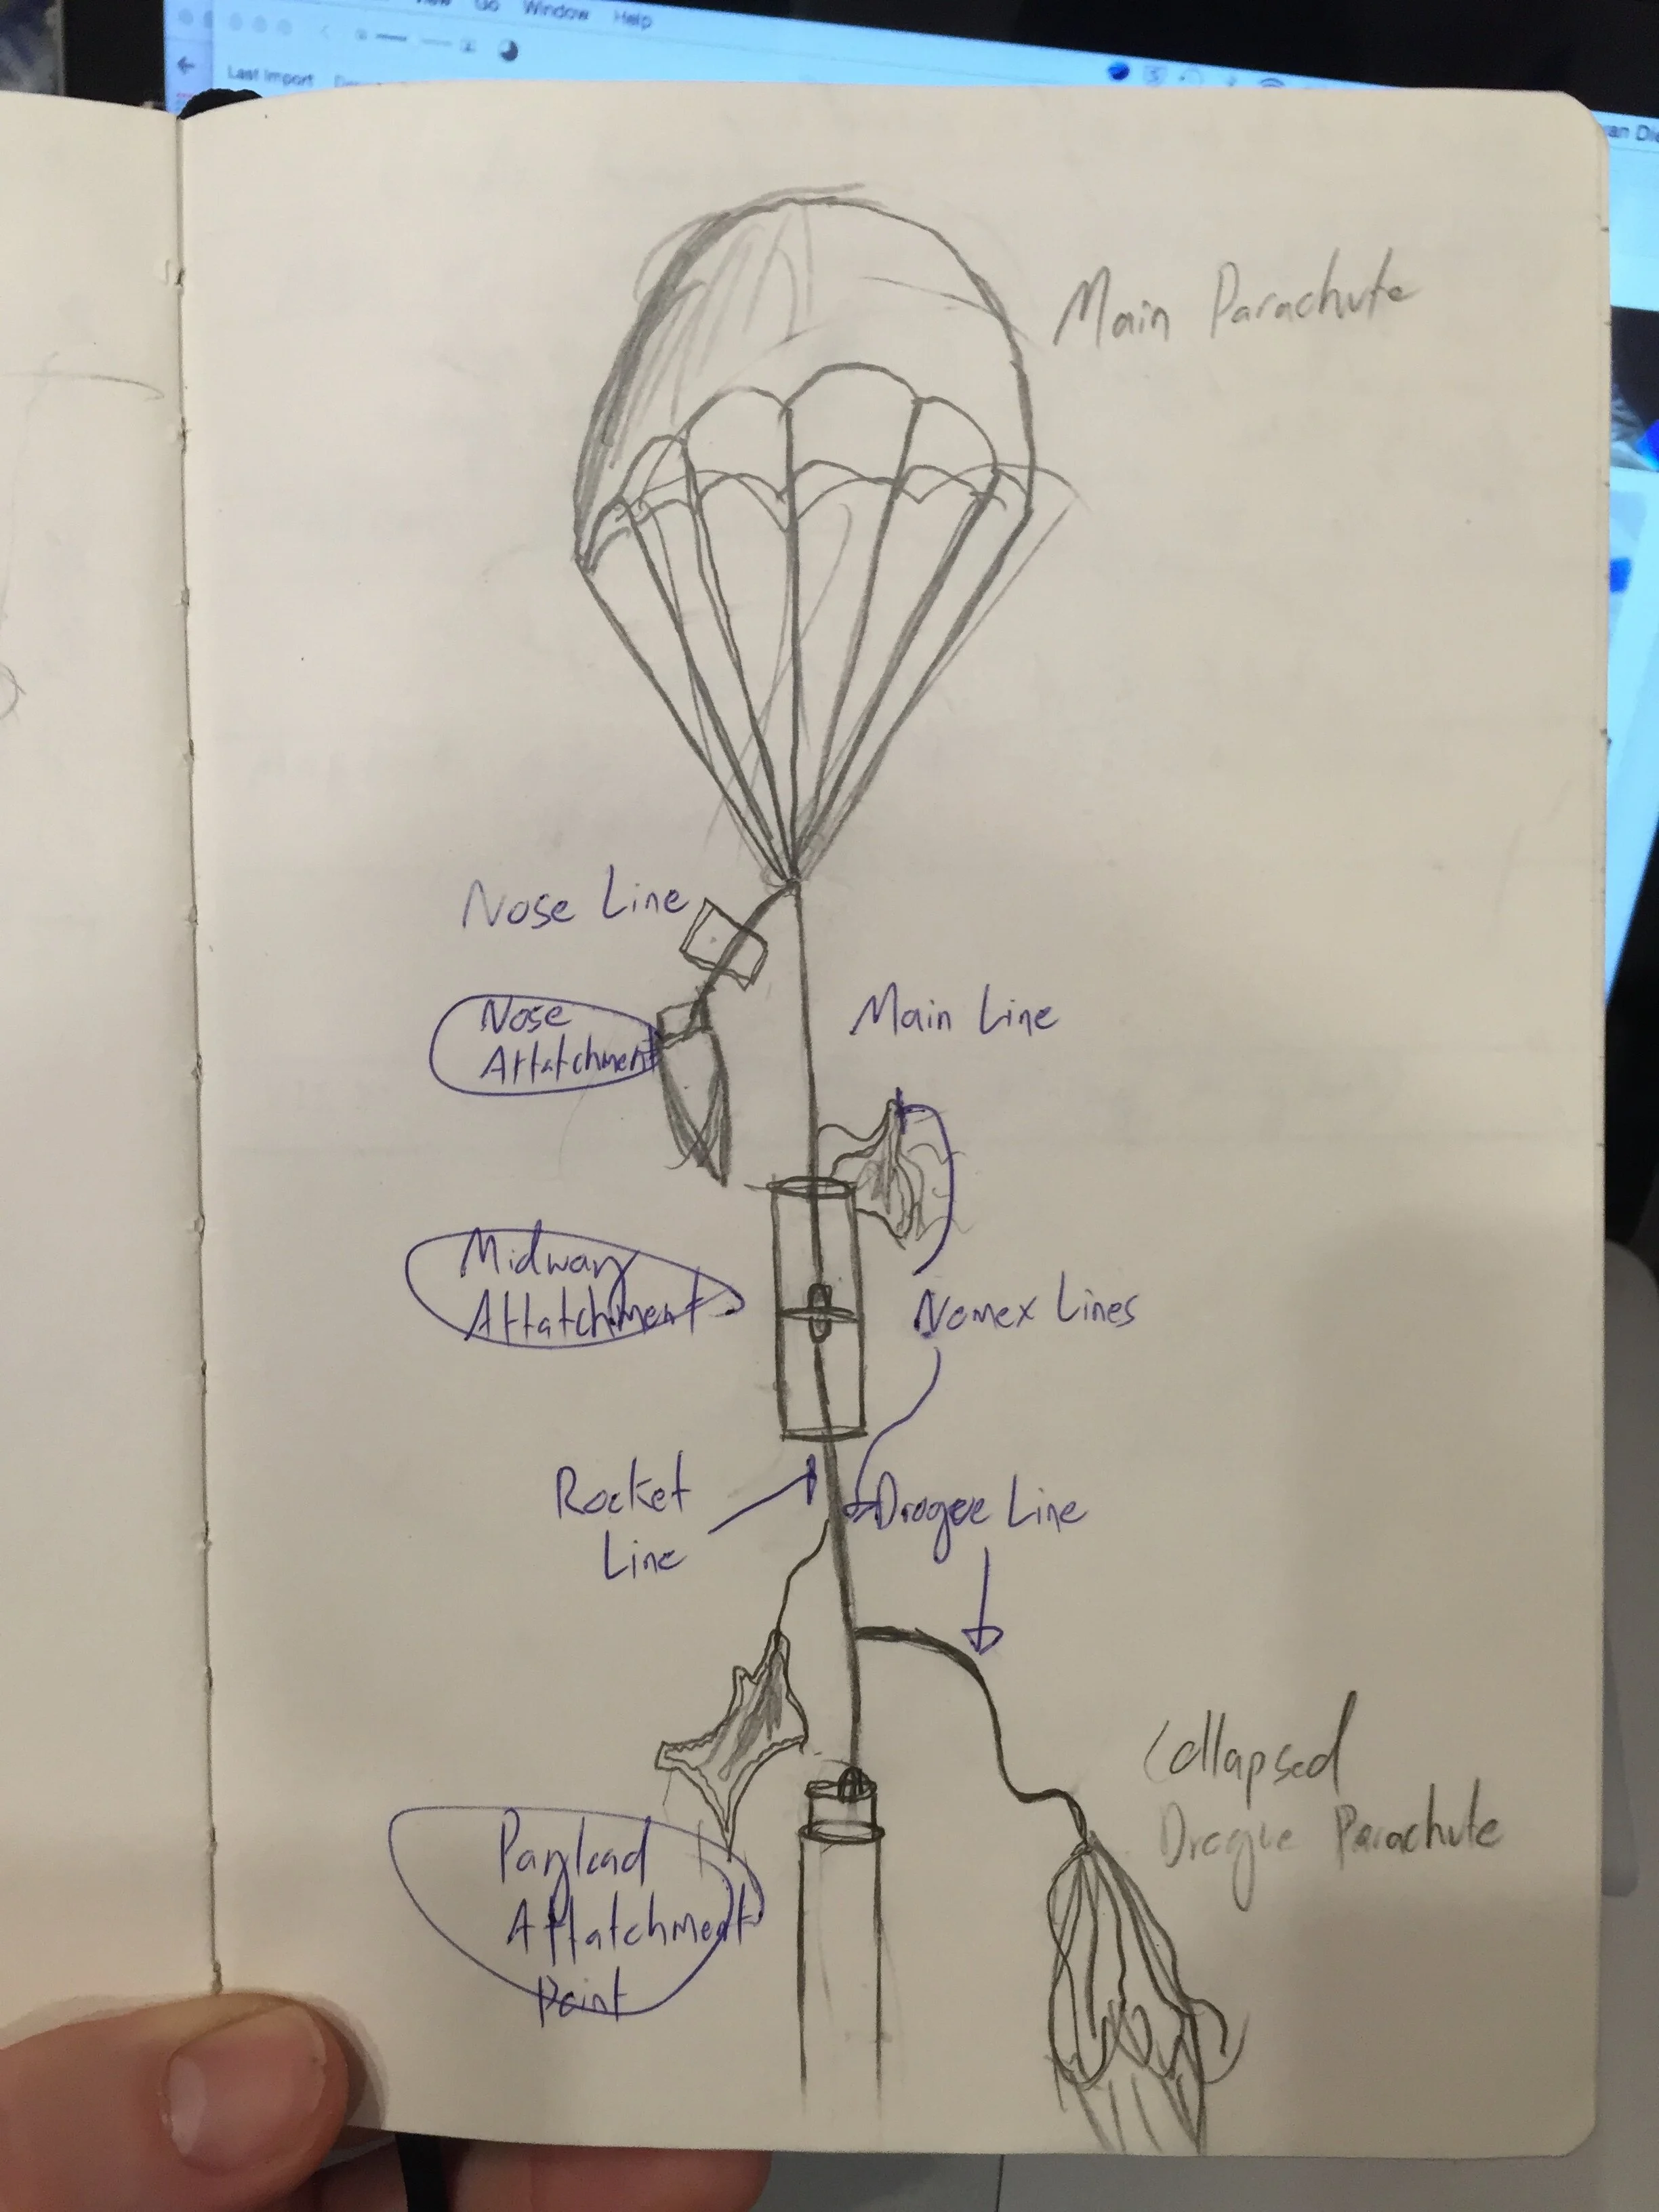 View Go Window Help
Last Import
Main Parachute
Nose Line
Nose
Attatchment
Main Line
Midway
Attatchment
Nomex Lines
Rocket
Line
Drogue Line
Collapsed
Drogue Parachute
Payload
Attatchment
Point